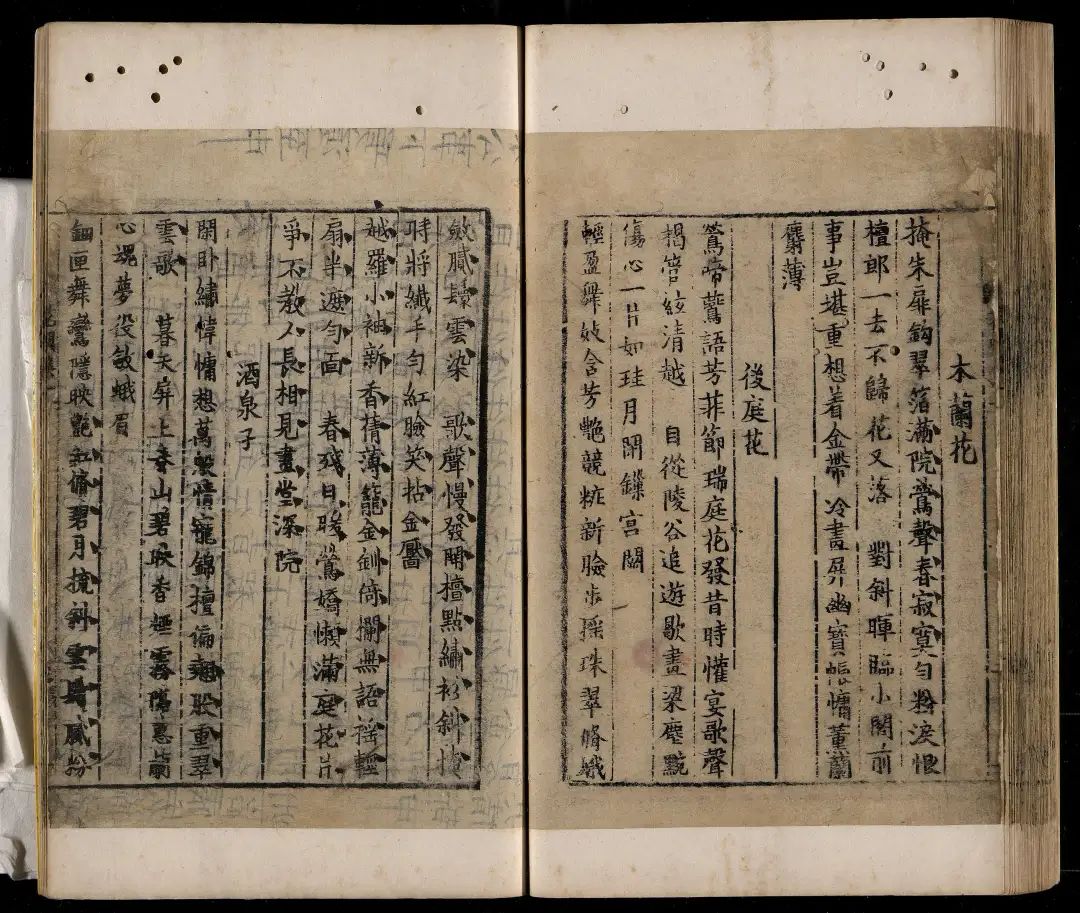 木蘭花
掩朱扉鈎翠箔滿院鶯聲春寂寞勻粉淚恨
檀郎一去不歸花又落 對斜暉臨小閣前
事豈堪重想着金帶冷畫屏幽寶帳慵薰蘭
麝薄
後庭花
鶯啼鷰語芳菲節瑞庭花發昔時懽宴歌聲
揭管絃清越 自從陵谷追遊歇畫梁塵黦
傷心一片如珪月閑鏁宮闕
輕盈舞妓含芳艷競粧新臉步搖珠翠脩蛾
斂膩鬟雲染 歌聲慢發開檀點繡衫斜掩
時將纖手勻紅臉笑拈金靨
越羅小袖新香蒨薄籠金釧倚攔無語搖輕
扇半遮勻面 春殘日暖鶯嬌懶滿庭花片
爭不教人長相見畫堂深院
酒泉子
閑卧繡幃慵想萬般情寵錦檀偏翹股重翠
雲欹 暮天屏上春山碧映香煙霧隔蕙蘭
心魂夢役斂蛾眉
鈿匣舞鸞隱映艷紅脩碧月梳斜雲鬢膩粉